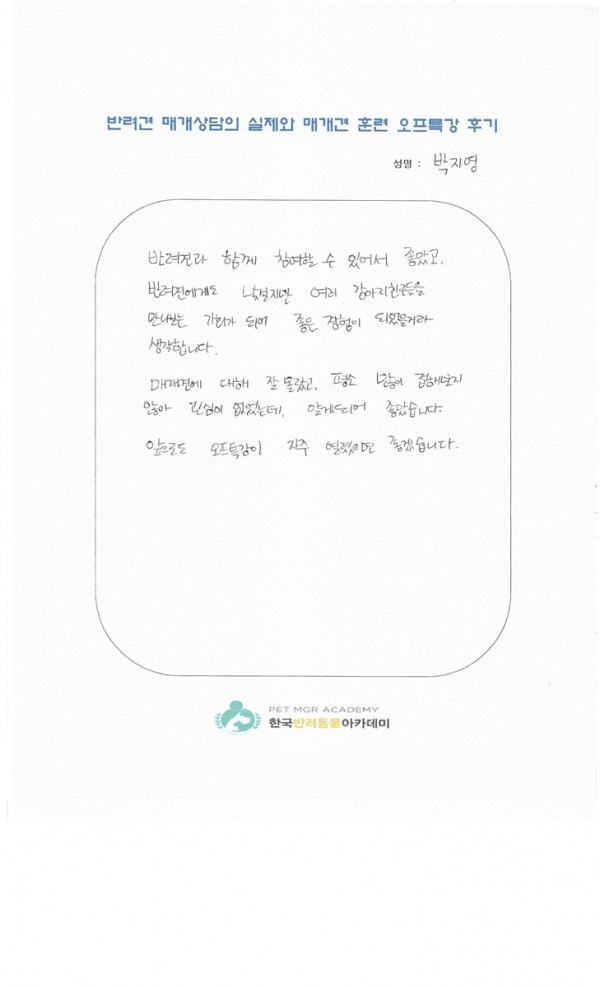 반려견 매개상담의 실제와 매개견 훈련 오프특강 후기
성명 : 박지영
반려견과 함께 참여할 수 있어서 좋았고,
반려견에게도 낯설지만 여러 강아지친구들을
만나보는 기회가 되어 좋은 경험이 되었을거라
생각합니다.
매개견에 대해 잘 몰랐고, 평소 많이 접해보지
않아 관심이 없었는데, 알게되어 좋았습니다.
앞으로도 오프특강이 자주 열렸으면 좋겠습니다.
PET MGR ACADEMY
한국반려동물아카데미